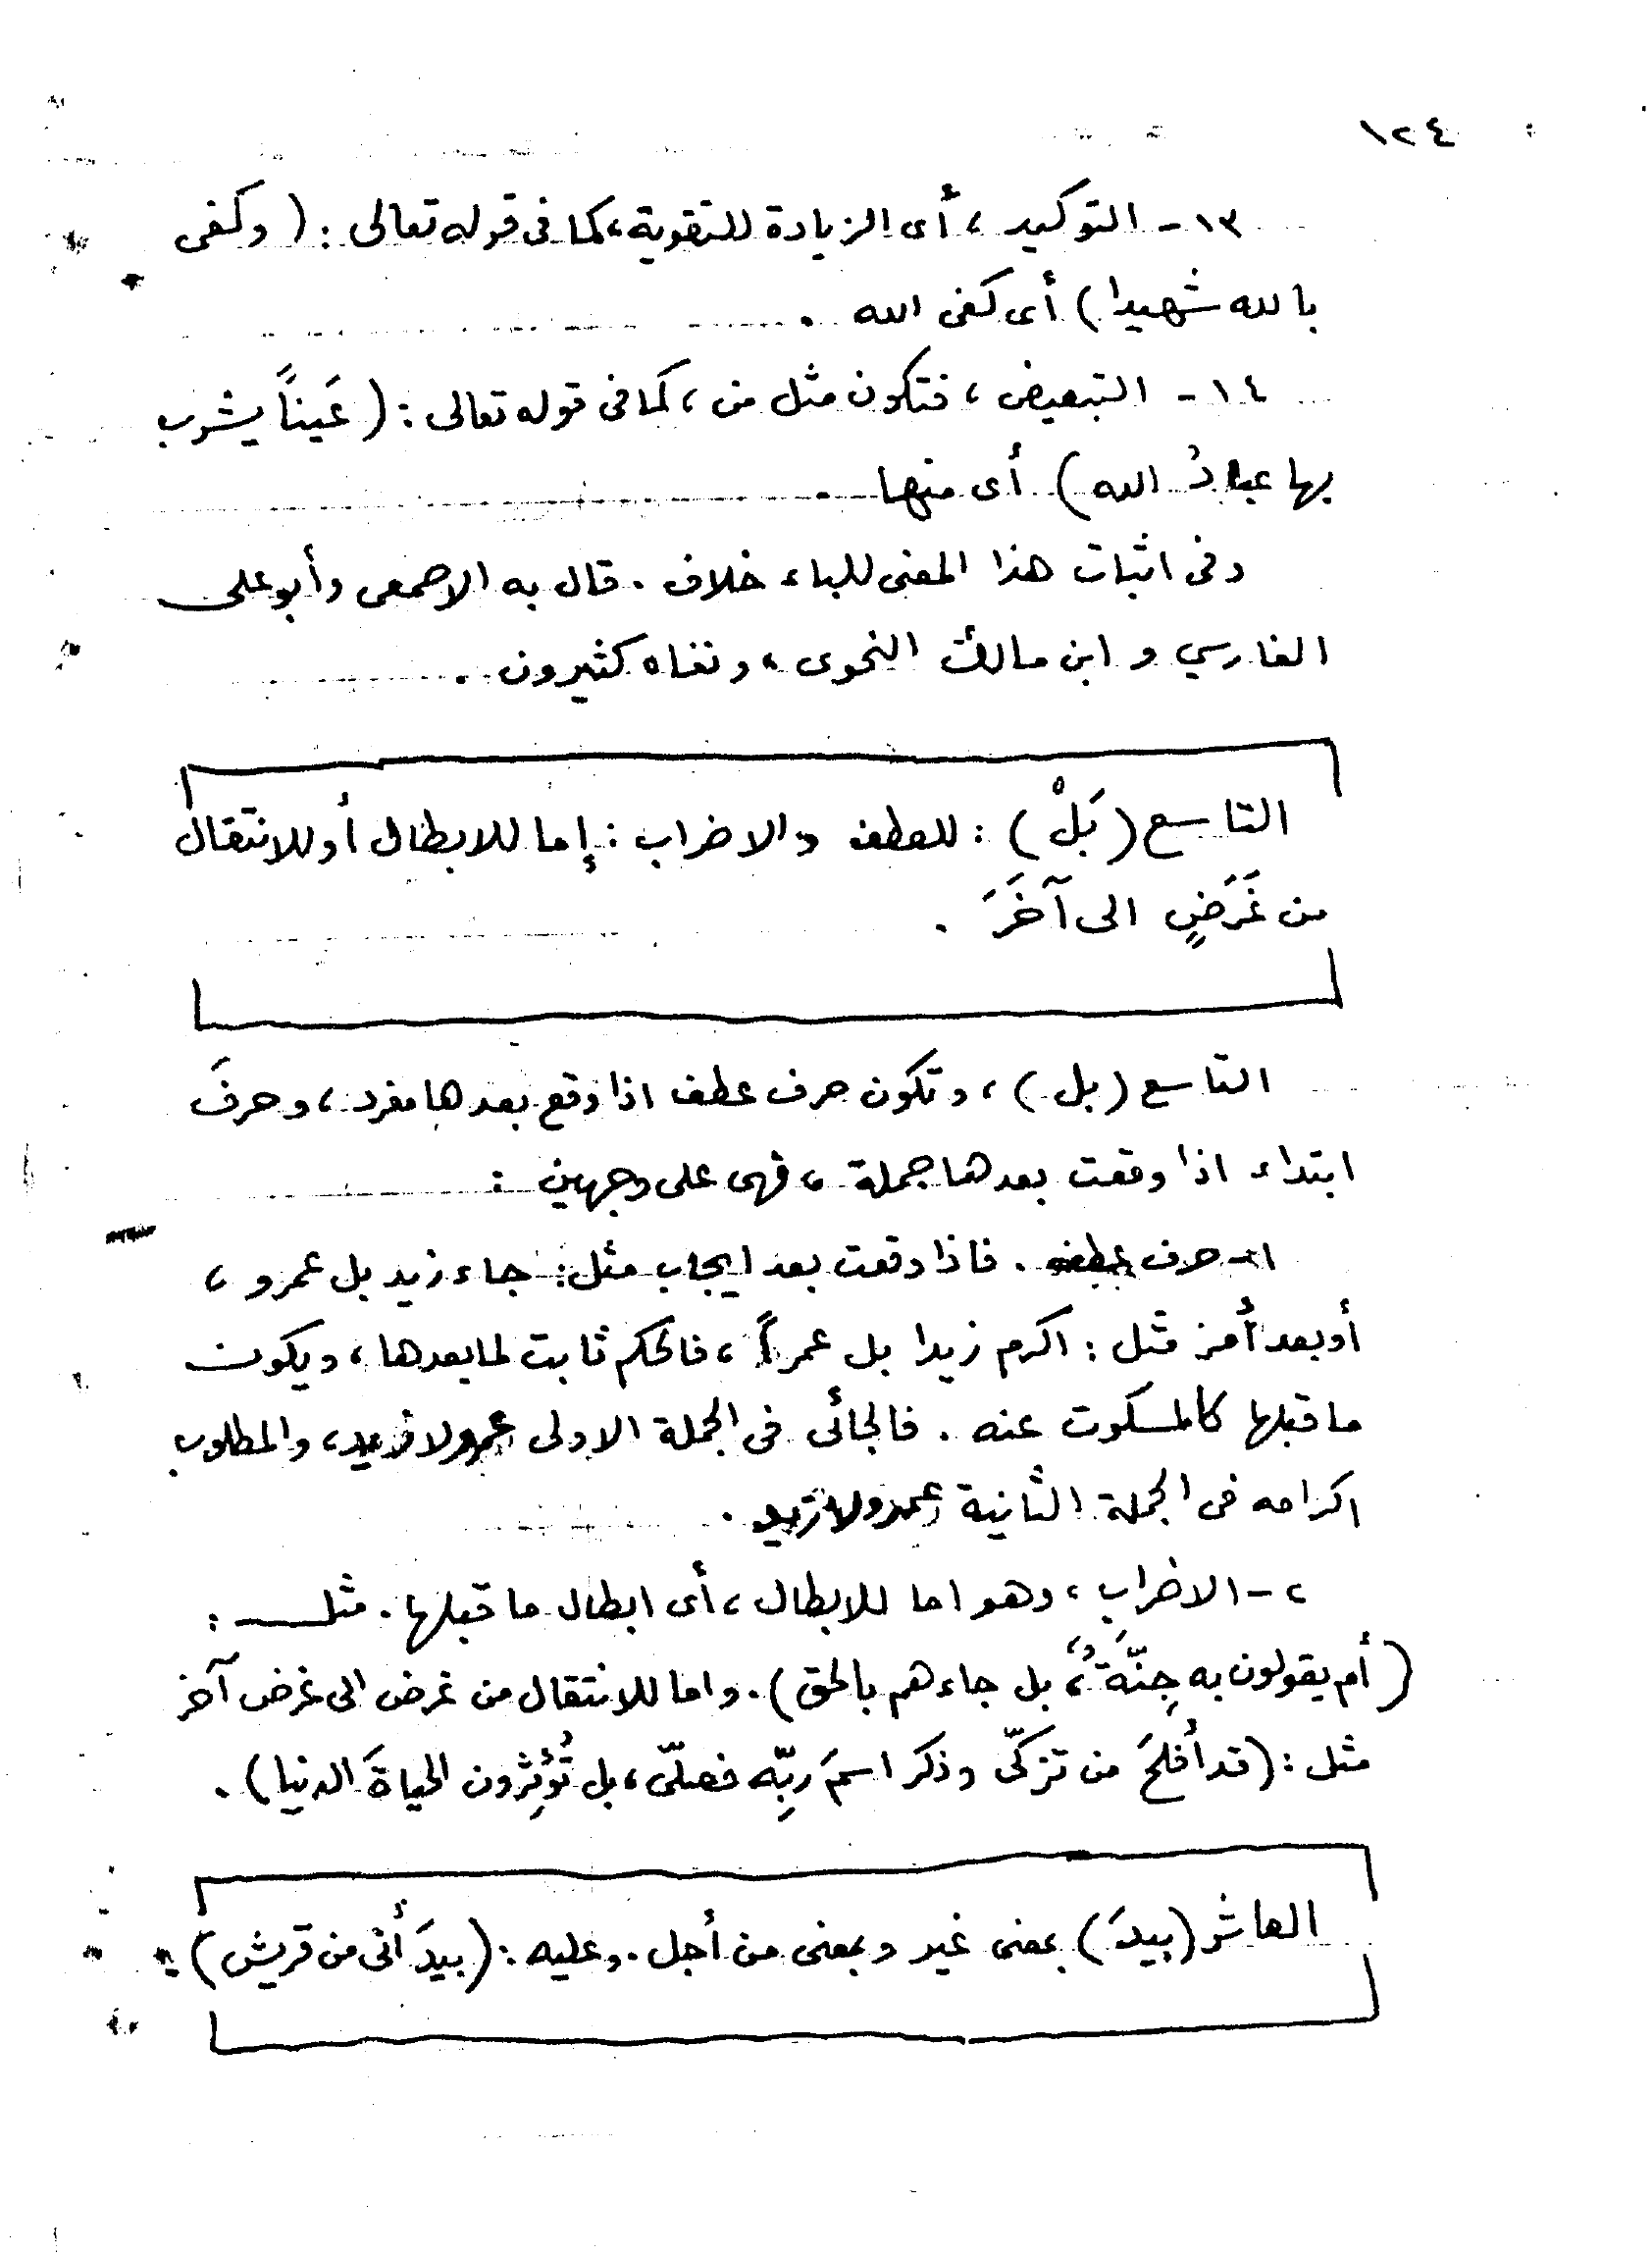 ١٢٤
١٣ - التوكيد ، أى الزيادة للتقوية ، كما فى قوله تعالى : ( وكفى
بالله شهيدا ) أى كفى الله .
١٤ - التبعيض ، فتكون مثل من ، كما فى قوله تعالى : ( عَيناً يشرب
بها عبادُ الله ) أى منها .
وفى اثبات هذا المعنى للباء خلاف . قال به الاصمعى وأبو على
الفارسي و ابن مالك النحوى ، ونفاه كثيرون .
التاسع ( بَلْ ) : للعطف والاضراب : إما للابطال أو للانتقال
من غَرَضٍ الى آخَرَ .
التاسع ( بل ) ، وتكون حرف عطف اذا وقع بعدها مفرد ، وحرفَ
ابتداء اذا وقعت بعدها جملة ، فهى على وجهين :
١ - حرف عطف . فاذا وقعت بعد ايجاب مثل : جاء زيد بل عمرو ،
أو بعد أمر مثل : اكرم زيدا بل عمراً ، فالحكم ثابت لما بعدها ، ويكون
ما قبلها كالمسكوت عنه . فالجائى فى الجملة الاولى عمرو لا زيد ، والمطلوب
اكرامه فى الجملة الثانية عمرو لا زيد .
٢ - الاضراب ، وهو اما للابطال ، أى ابطال ما قبلها . مثل :
( أم يقولون به جِنّةٌ ، بل جاءهم بالحق ) . واما للانتقال من غرض الى غرض آخر
مثل : ( قد أفلحَ من تزكّى وذكر اسمَ ربِّه فصلّى ، بل تُؤثِرون الحياةَ الدنيا ) .
العاشر ( بيدَ ) بمعنى غير وبمعنى من أجل . وعليه : ( بيدَ أنى من قريش )